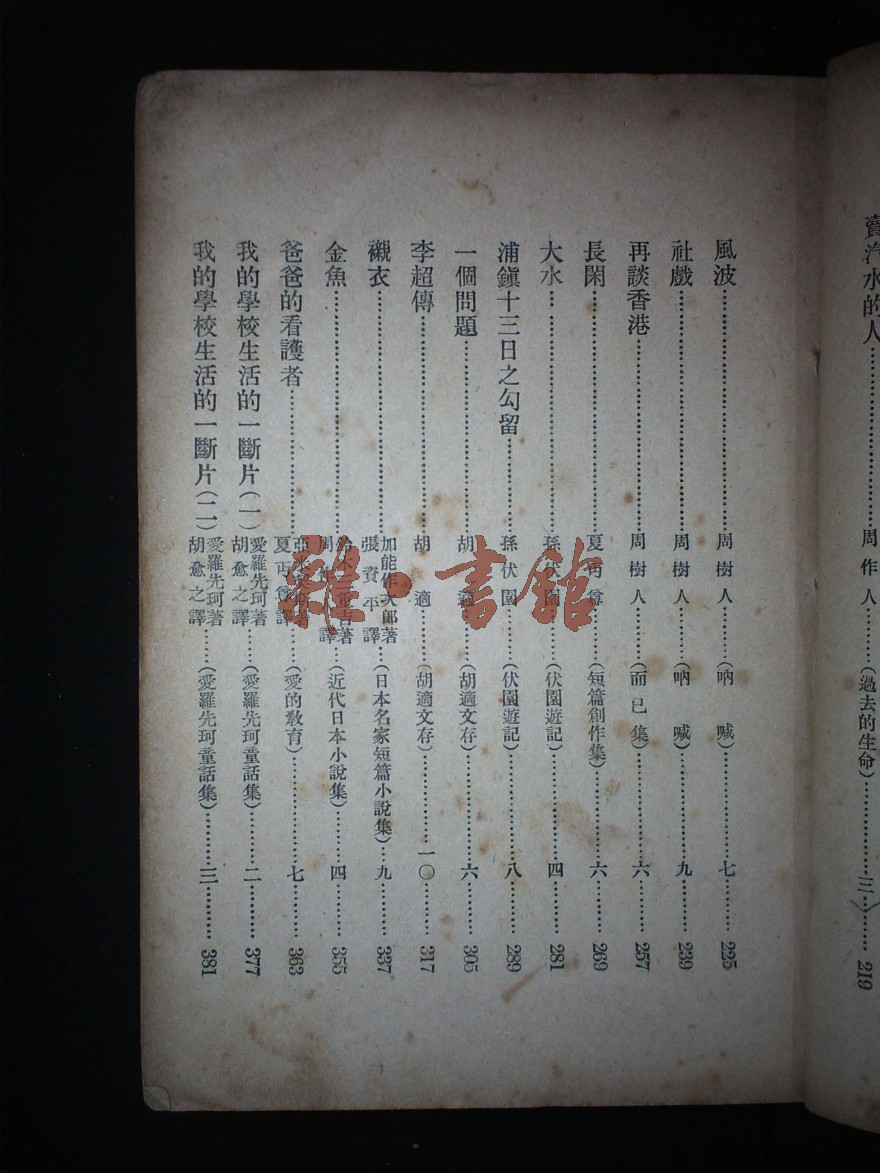 賣汽水的人……周作人……(過去的生命)……三……219
風波……周樹人……(吶喊)……七……225
社戲……周樹人……(吶喊)……九……239
再談香港……周樹人……(而已集)……六……257
長閑……夏丏尊……(短篇創作集)……六……269
大水……孫伏園……(伏園遊記)……四……281
浦鎭十三日之勾留……孫伏園……(伏園遊記)……八……289
一個問題……胡適……(胡適文存)……六……305
李超傳……胡適……(胡適文存)……一〇……317
襯衣……加能作次郎著 張資平譯……(日本名家短篇小說集)……九……337
金魚……鈴木三重吉著 周作人譯……(近代日本小說集)……四……355
爸爸的看護者……亞米契斯著 夏丏尊譯……(愛的敎育)……七……363
我的學校生活的一斷片(一)……愛羅先珂著 胡愈之譯……(愛羅先珂童話集)……二……377
我的學校生活的一斷片(二)……愛羅先珂著 胡愈之譯……(愛羅先珂童話集)……三……381
雜·書館